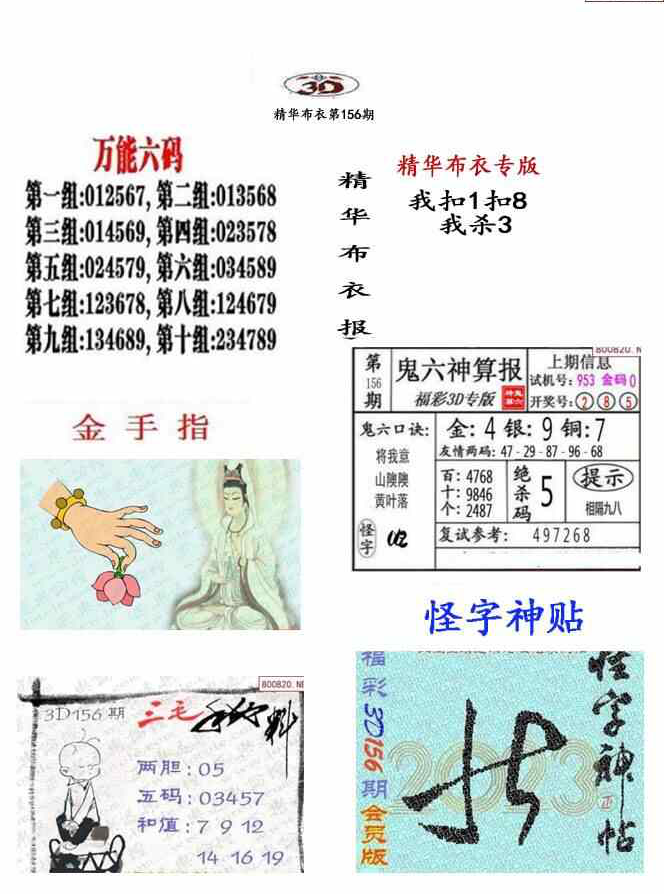 3D
精华布衣第156期
万能六码
第一组:012567,第二组:013568
第三组:014569,第四组:023578
第五组:024579,第六组:034589
第七组:123678,第八组:124679
第九组:134689,第十组:234789
精华布衣报
精华布衣专版
我扣1扣8
我杀3
金手指
800820.N
第156期
鬼六神算报
福彩3D专版
上期信息
试机号:953 金码0
开奖号:②⑧⑤
鬼六口诀:
将我意
山陾陾
黄叶落
金:4 银:9 铜:7
友情两码:47-29-87-96-68
百:4768
十:9846
个:2487
绝杀码
5
提示
相隔九八
怪字
复试参考: 497268
怪字神贴
800820.NE
3D156期
三毛
两胆:05
五码:03457
和值:7 9 12
14 16 19
福彩3D156期会员版
2023
怪字神帖
正